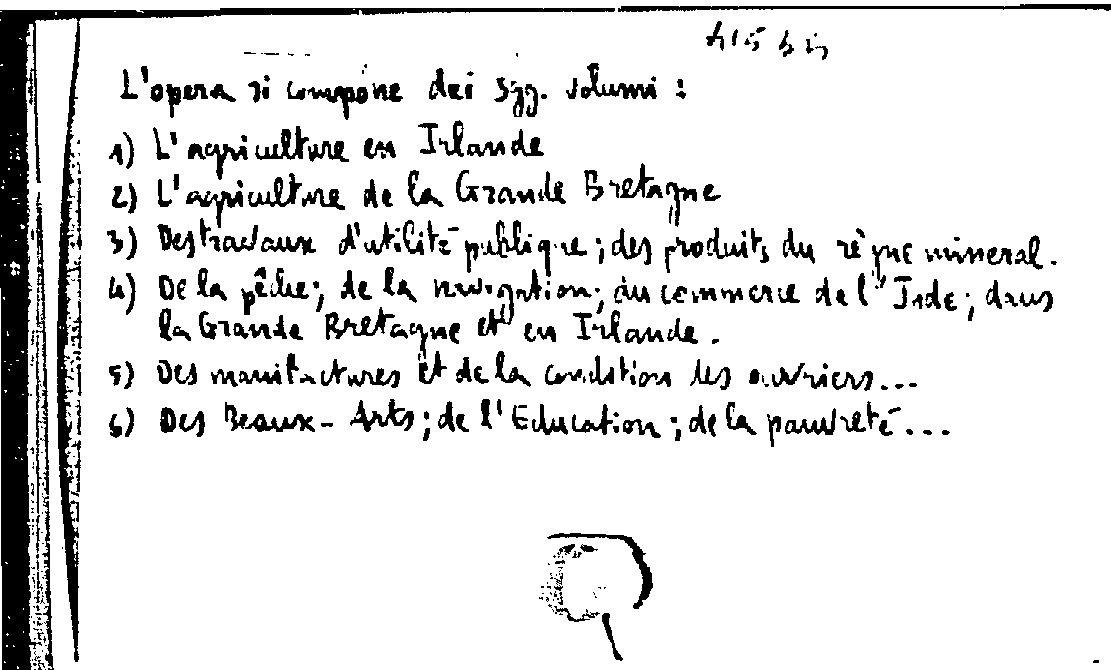 415 bis
L'opera si compone dei sgg. volumi :
1) L'agriculture en Irlande
2) L'agriculture de la Grande Bretagne
3) Des travaux d'utilité publique ; des produits du règne mineral.
4) De la pêche ; de la navigation ; du commerce de l'Inde ; dans
la Grande Bretagne et en Irlande.
5) Des manufactures et de la condition des ouvriers...
6) Des Beaux-Arts ; de l'Education ; de la pauvreté...